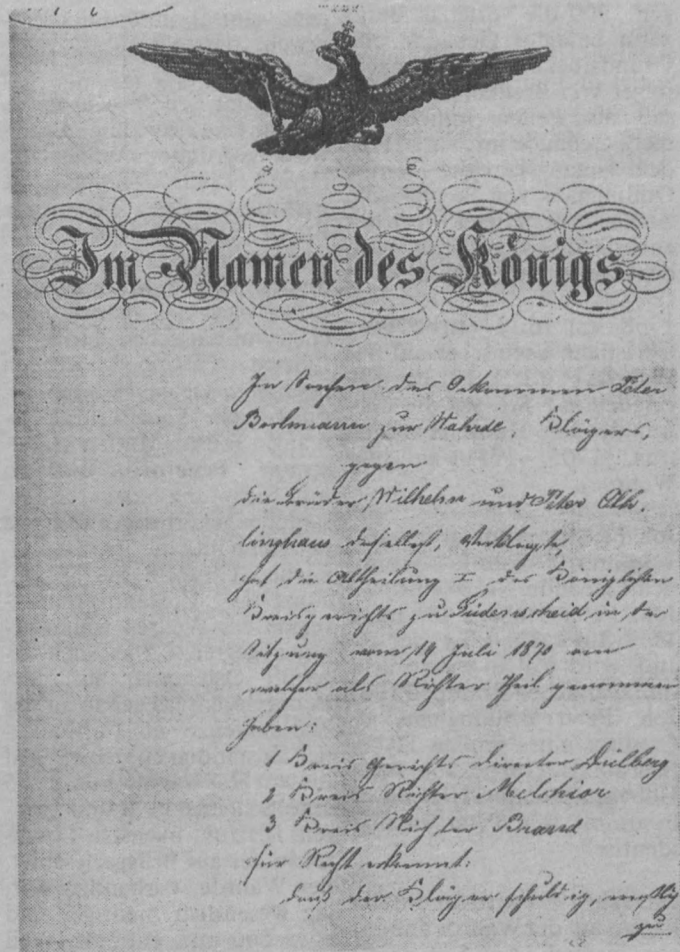 Im Namen des Königs
In Sachen des Oekonomen Peter
zur Nahrde, Klägers,
gegen
die Brüder Wilhelm und Peter Ohl-
linghaus daselbst, Verklagte,
hat die Abtheilung I des Königlichen
Kreisgerichts zu Lüdenscheid in der
Sitzung vom 19 Juli 1870 an
welcher als Richter Theil genommen
haben:
1 Kreis Gerichts Director Dülberg
2 Kreis Richter Melchior
3 Kreis Richter Brand
für Recht erkannt:
daß der Kläger schuldig,